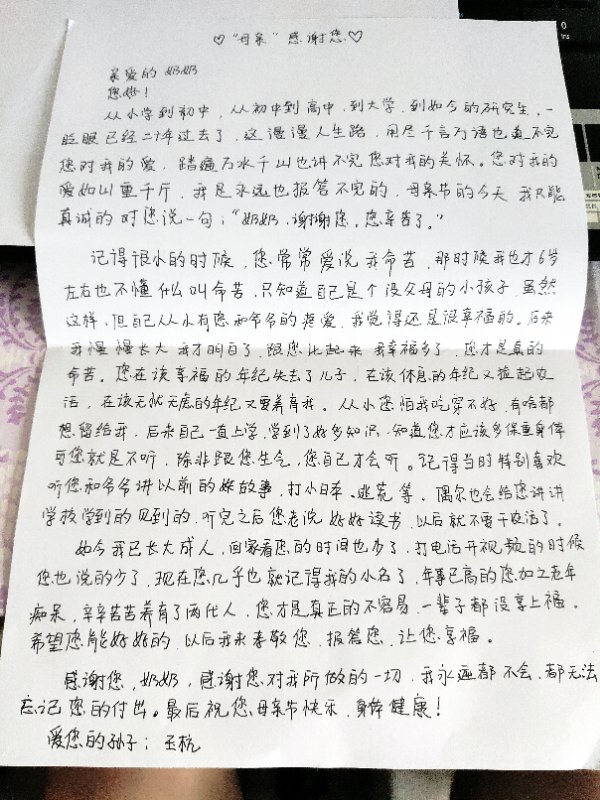 ♡“母亲”感谢您♡
亲爱的奶奶
您好！
从小学到初中，从初中到高中，到大学，到如今的研究生，一
眨眼已经二十年过去了，这漫漫人生路，用尽千言万语也道不完
您对我的爱，踏遍万水千山也讲不完您对我的关怀。您对我的
爱如山重千斤，我是永远也报答不完的，母亲节的今天我只能
真诚的对您说一句：“奶奶，谢谢您，您辛苦了。”
记得很小的时候，您常常爱说我命苦，那时候我也才6岁
左右也不懂什么叫命苦，只知道自己是个没父母的小孩子，虽然
这样，但自己从小有您和爷爷的疼爱，我觉得还是很幸福的。后来
我慢慢长大我才明白了，跟您比起来我幸福多了，您才是真的
命苦。您在该享福的年纪失去了儿子，在该休息的年纪又捡起农
活，在该无忧无虑的年纪又要养育我。从小您怕我吃穿不好，有啥都
想留给我，后来自己一直上学，学到了好多知识，知道您才应该多保重身体
可您就是不听，除非跟您生气，您自己才会听。记得当时特别喜欢
听您和爷爷讲以前的故事，打小日本、逃荒等，偶尔也会给您讲讲
学校学到的见到的，听完之后您老说好好读书，以后就不要干农活了。
如今我已长大成人，回家看您的时间也少了，打电话开视频的时候
您也说的少了，现在您几乎也就记得我的小名了，年事已高的您加上老年
痴呆，辛辛苦苦养育了两代人，您才是真正的不容易，一辈子都没享上福。
希望您能好好的，以后我来孝敬您，报答您，让您享福。
感谢您，奶奶，感谢您对我所做的一切，我永远都不会、都无法
忘记您的付出。最后祝您母亲节快乐，身体健康！
爱您的孙子：王杭